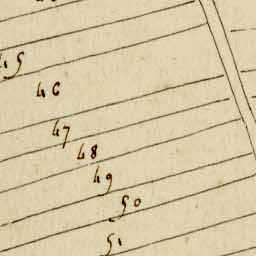 45
46
47
48
49
50
51